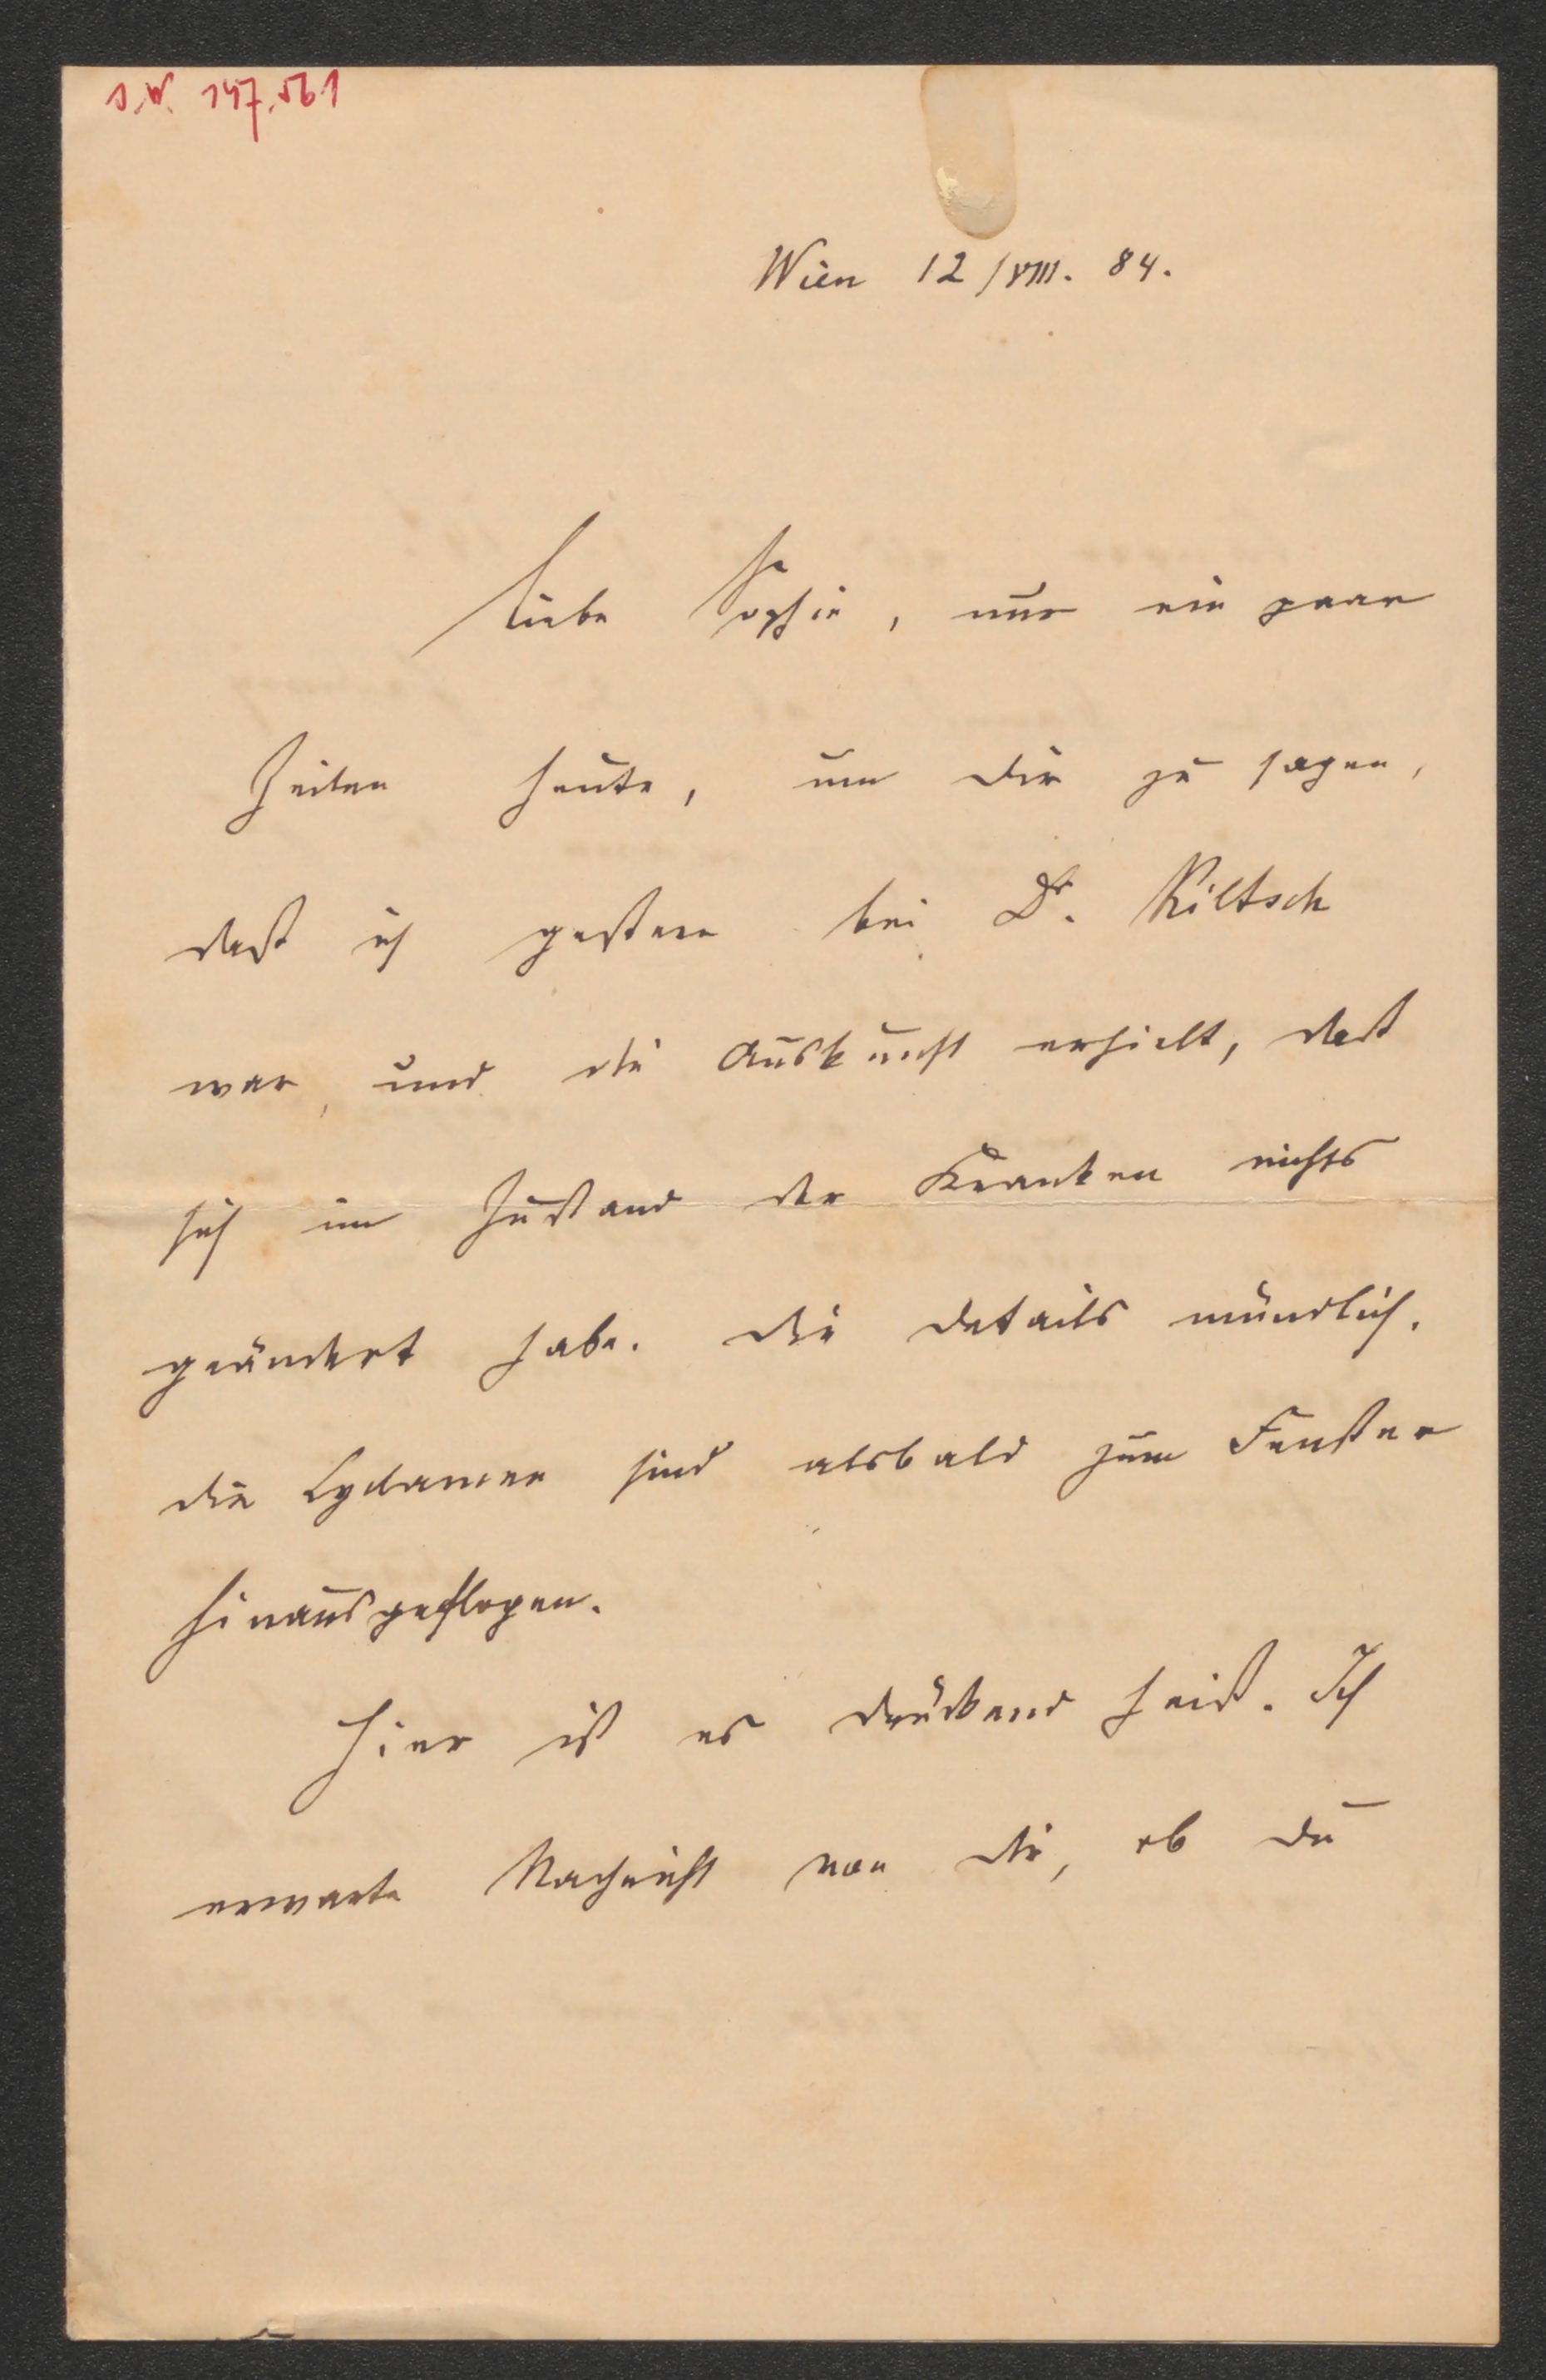 I.N. 147.561
Wien 12/VIII. 84.
Liebe Sophie, nur ein paar
Zeilen heute, um Dir zu sagen,
daß ich gestern bei Dr. Kiltsch
war, und die Auskunft erhielt, daß
sich im Zustand der Kranken nichts
geändert habe. Die Details mündlich.
Die Cyclamen sind alsbald zum Fenster
hinausgeflogen.
Hier ist es drückend heiß. Ich
erwarte Nachricht von Dir, ob Du